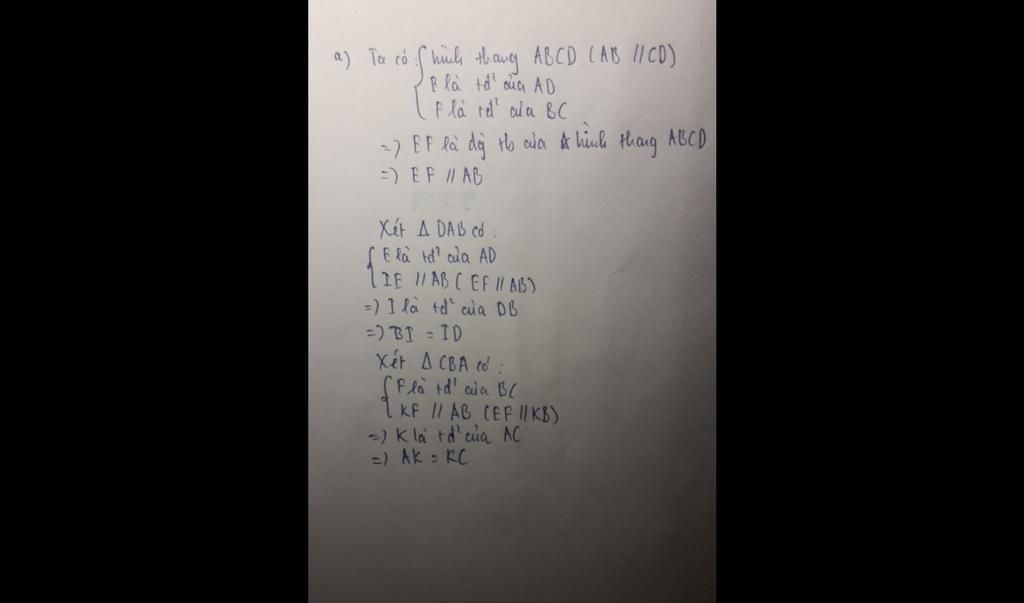 a) Ta có: { hình thang ABCD (AB // CD)
E là tđ² của AD
F là tđ² của BC
=) EF là đg tb của hình thang ABCD
=) EF // AB
Xét Δ DAB có:
{ E là tđ² của AD
IE // AB ( EF // AB)
=) I là tđ² của DB
=) BI = ID
Xét Δ CBA có:
{ F là tđ² của BC
KF // AB (EF // KB)
=) K là tđ² của AC
=) AK = KC